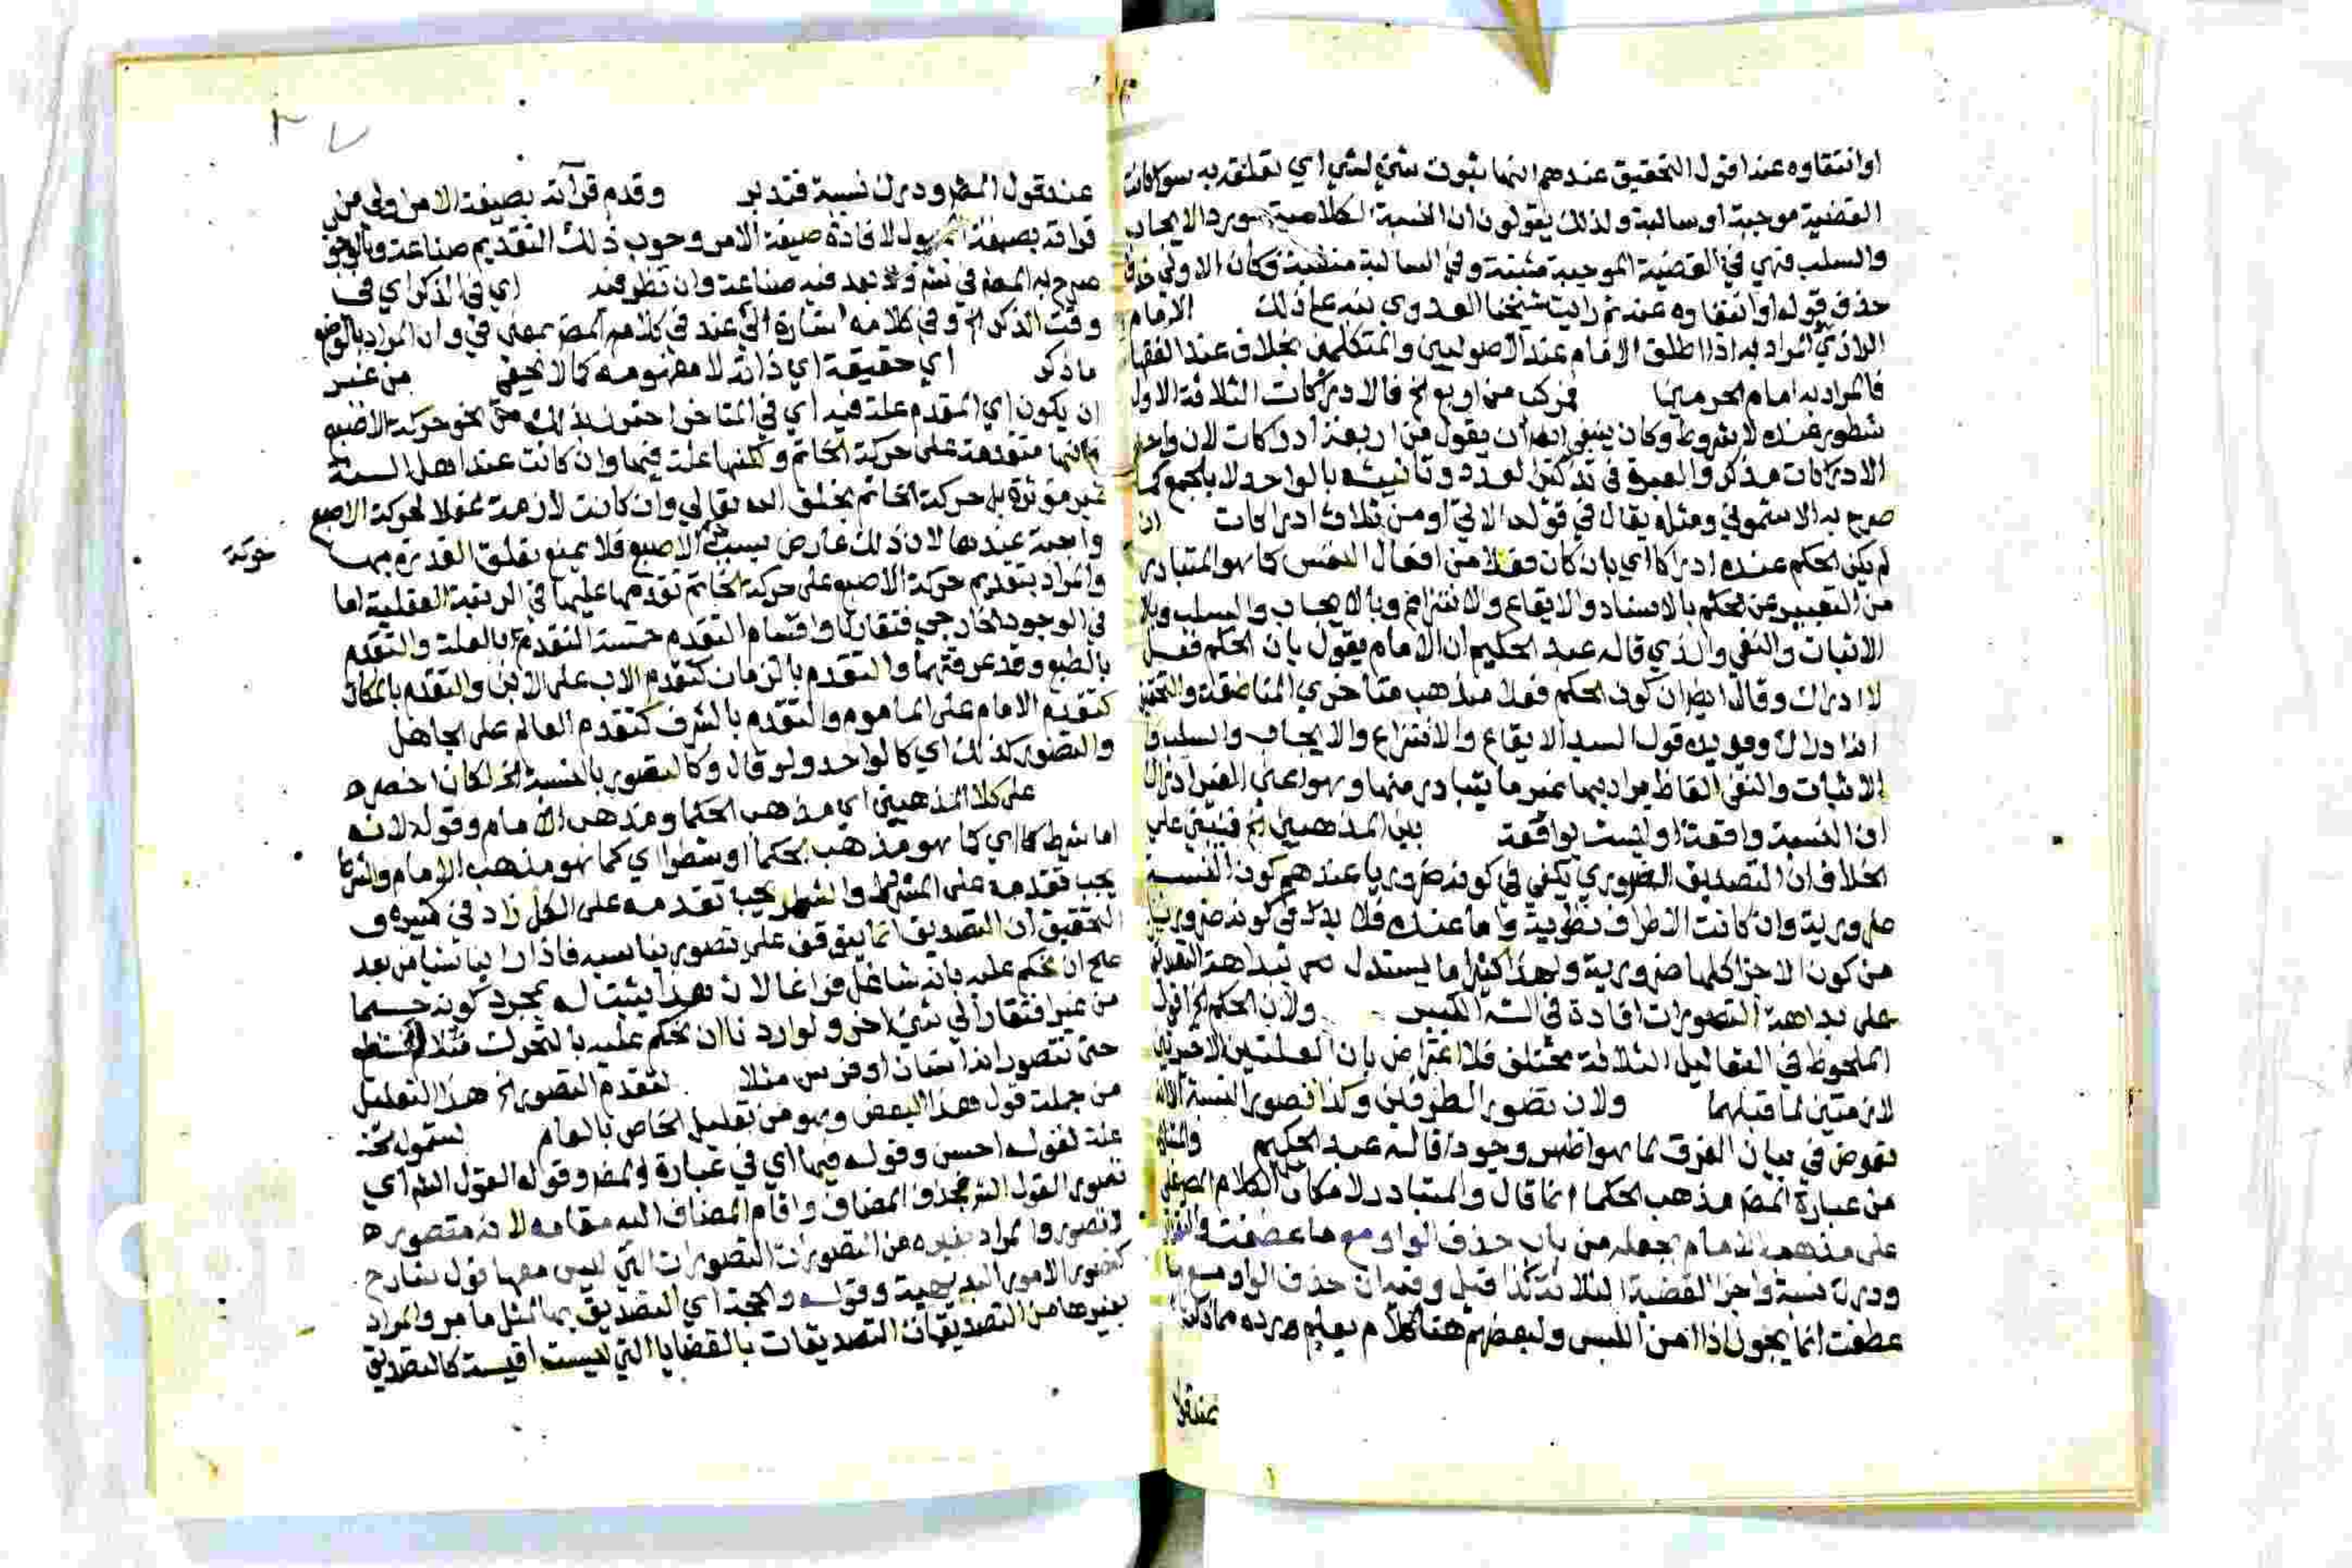 او انتقاوه عند اقول التحقيق عندهم انها ثبوت شئ لشئ اي تعلقه به سوا كانت
القضية موجبة او سالبة ولذلك يقولون ان النسبة الكلامية مورد الايجاب
والسلب فهي في القضية الموجبة مثبتة وفي السالبة منفية وكان الاولى
حذف قوله او انتفاوه عنه ثم رايت شيخنا العدوي نبه على ذلك الامام
الرازي المراد به اذا اطلق الامام عند الاصوليين والمتكلمين بخلاف عند الفقها
فالمراد به امام الحرمين فمركب من اربع الخ فالادراكات الثلاثة الاول
شطور عنده لا شروط وكان ينبغي له ان يقول من اربعة ادراكات لان واحد
الادراكات مذكر والعبرة في تذكير العدد وتانيثه بالواحد لا بالجمع كما
صرح به الاشموني ومثله يقال في قوله الاتي او من ثلاث ادراكات ان
لم يكن الحكم عنده ادراكا اي بان كان فعلا من افعال النفس كما هو المتبادر
من التعبير عن الحكم بالاسناد والايقاع والانتزاع وبالايجاب والسلب
الاثبات والنفي والذي قاله عبد الحكيم ان الامام يقول بان الحكم فعل
لا ادراك وقال ايضا ان كون الحكم فعلا مذهب متاخري المناطقة
انه ادراك ويويده قول السيد الايقاع والانتزاع والايجاب والسلب
الاثبات والنفي الفاظ يراد بها غير ما يتبادر منها وهو اعني الغير ادراك
ان النسبة واقعة او ليست بواقعة بين المذهبين الخ فينبني على
الخلاف ان التصديق الضروري يكفي في كونه ضروريا عندهم كون النسبة
ضرورية وان كانت الاطراف نظرية واما عنده فلا بد في كونه ضروريا
من كون الاجزا كلها ضرورية ولهذا كثيرا ما يستدل ببداهة
على بداهة التصورات افاده في الش الكبير ولان الحكم الخ اقول
الملحوظ في التعاليل الثلاثة مختلف فلا اعتراض بان العلتين الاخيرتين
لازمتين لما قبلهما ولان تصور الطرفين وكذا تصور النسبة
تعرض في بيان الفرق لما هو اظهر وجودا قاله عبد الحكيم
من عبارة المصر مذهب الحكما انما قال والمتبادر لامكان الكلام
على مذهب الامام بجعله من باب حذف الواو مع ما عطفت
ودرك نسبة واجزا القضية الثلاثة كذا قيل وفيه ان حذف الواو مع
عطفت انما يجوز اذا امن اللبس ولبعضهم هنا كلام يعلم رده مما
عند قول المصر ودرك نسبة فتدبر وقدم قرآته بصيغة الامر اولى من
قراته بصيغة لافادة صيغة الامر وجوب ذلك التقديم صناعة
صرح به المصر في ولا بعد فيه صناعة وان نظر فيه اي في الذكر اي في
وقت الذكر الخ وفي كلامه اشارة الى عند في كلام المصر بمعنى في وان المراد بالوضع
ما ذكر اي حقيقة اي ذاته لا مفهومه كما لا يخفى من غير
ان يكون اي المقدم علة فيه اي في المتاخر احترز بذلك نحو حركة الاصبع
فانها متقدمة على حركة الخاتم وكلنها علة فيها وان كانت عند اهل السنة
غير موثرة بل حركة الخاتم بخلق الله تعالى وان كانت لازمة عقلا لحركة الاصبع
واجبة عندها لان ذلك عارض بسبب الاصبع فلا يمنع تعلق القدرة بها
حركة
والمراد بتقديم حركة الاصبع على حركة الخاتم تقدمها عليها في الرتبة العقلية اما
في الوجود الخارجي فتقارنا واقسام التقدم خمسة التقدم بالعلة والتقدم
بالطبع وقد عرفتهما والتقدم بالزمان كتقدم الاب على الابن والتقدم بالمكان
كتقدم الامام على الماموم والتقدم بالشرف كتقدم العالم على الجاهل
والتصور كذلك اي كالواحد ولو قال وكالتصور بالنسبة الخ لكان اخصر
على كلا المذهبين اي مذهب الحكما ومذهب الامام وقوله لانه
اما شرط كا اي كما هو مذهب الحكما او شطر اي كما هو مذهب الامام
يجب تقدمه على المشروط والشطر يجب تقدمه على الكل زاد في كبيره
التحقيق ان التصديق انما يتوقف على تصور يناسبه فاذا راينا شيا من بعد
علي ان نحكم عليه بانه شاغل فراغا لان هذا يثبت له بمجرد كونه جسما
من غير افتقار الى شئ اخر ولو اردنا ان نحكم عليه بالتحرك مثلا
حتى نتصور انه انسان او فرس مثلا لتقدم التصور الخ هذا التعليل
من جملة قول هذا البعض وهو من تعليل الخاص بالعام لشموله
علة لقوله احسن وقوله فيها اي في عبارة المصر وقوله القول الشر اي
تصور القول الشر فحذف المضاف واقام المضاف اليه مقامه لانه متصور
لا تصور والمراد بغيره من التصورات التصورات التي ليس معها قول شارح
كتصور الامور البديهية وقوله والحجة اي التصديق بها لمثل ما مر والمراد
بغيرها من التصديقات التصديقات بالقضايا التي ليست اقيسة كالتصديق